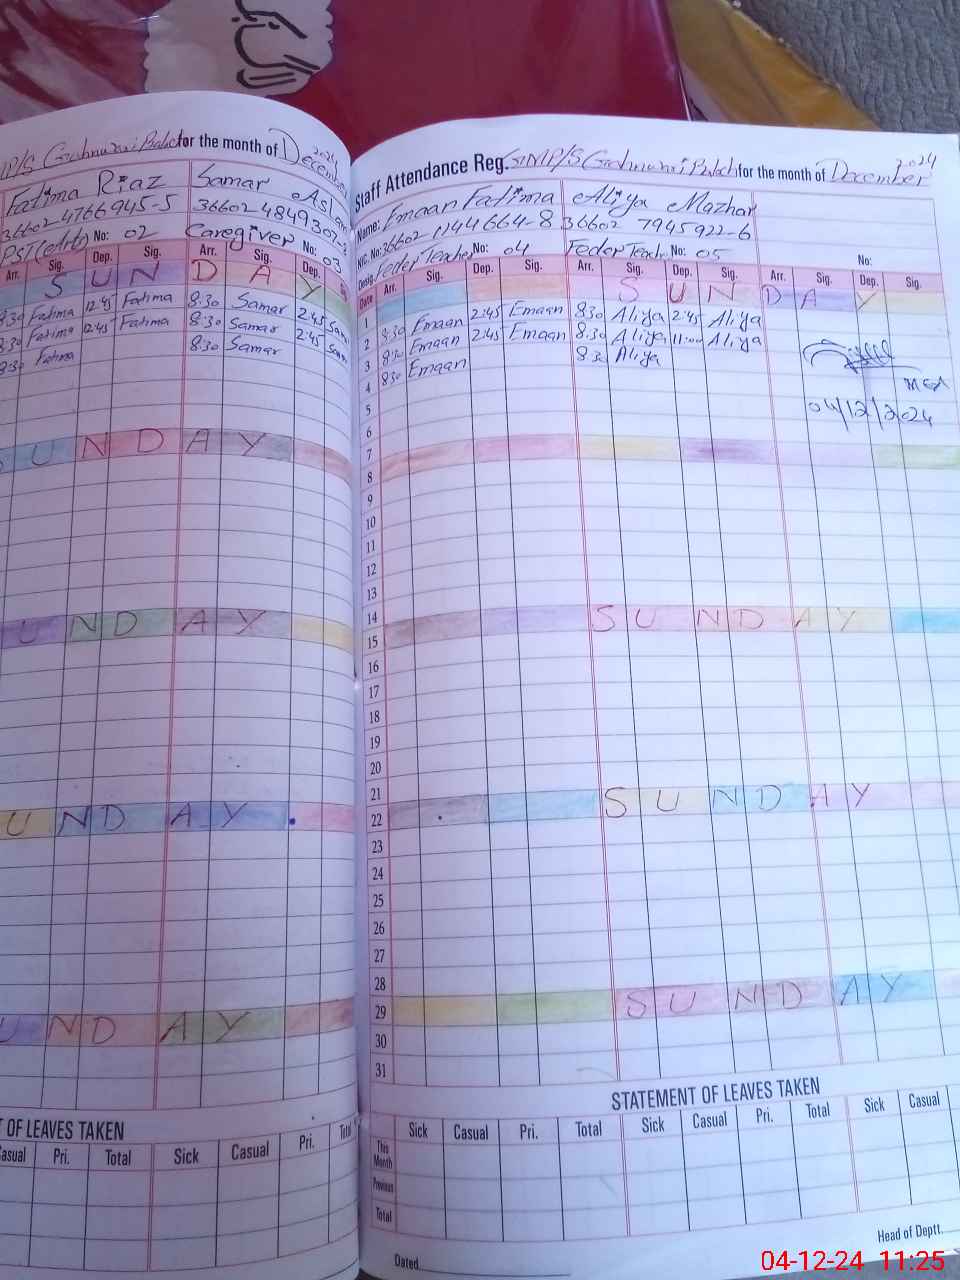 for the month of December 2024
Fatima Riaz Samar Aslam
36602 4766945-5
PST (Arts) No: 02 Caregiver No: 03
Arr. Sig. Dep. Sig. Arr. Sig. Dep.
S U N D A Y
8:30 Fatima 12:45 Fatima 8:30 Samar 2:45
8:30 Fatima 12:45 Fatima 8:30 Samar 2:45
8:30 Fatima 8:30 Samar
S U N D A Y
U N D A Y
U N D A Y
U N D A Y
T OF LEAVES TAKEN
Casual Pri. Total Sick Casual Pri. Total
Staff Attendance Reg. for the month of December 2024
Name: Emaan Fatima Aliya Mazhar
NIC. No: 36602 1144664-8 36602 7945922-6
Desig. Feder Teacher No: 04 Feder Teach No: 05 No:
Date Arr. Sig. Dep. Sig. Arr. Sig. Dep. Sig. Arr. Sig. Dep. Sig.
1 S U N D A Y
2 8:30 Emaan 2:45 Emaan 8:30 Aliya 2:45 Aliya
3 8:30 Emaan 2:45 Emaan 8:30 Aliya 11:00 Aliya
4 8:30 Emaan 8:30 Aliya
MEA
04/12/2024
5
6
7
8
9
10
11
12
13
14
15 S U N D A Y
16
17
18
19
20
21
22 S U N D A Y
23
24
25
26
27
28
29 S U N D A Y
30
31
STATEMENT OF LEAVES TAKEN
Sick Casual Pri. Total Sick Casual Pri. Total Sick Casual
This Month
Previous
Total
Dated
Head of Deptt.
04-12-24 11:25